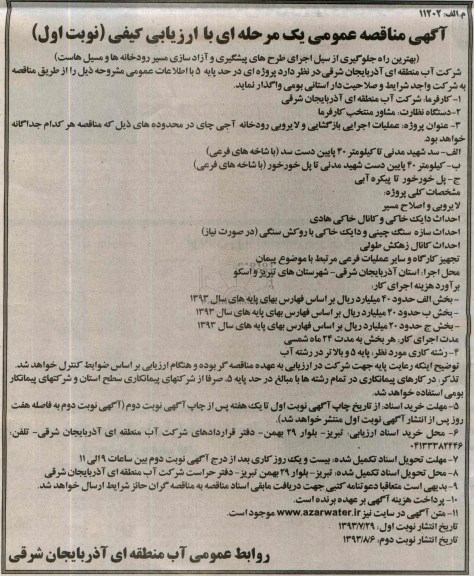 م.الف: ۱۱۲۰۲
آگهی مناقصه عمومی یک مرحله ای با ارزیابی کیفی (نوبت اول)
(بهترین راه جلوگیری از سیل اجرای طرح های پیشگیری و آزادسازی مسیر رودخانه ها و مسیل هاست)
شرکت آب منطقه ای آذربایجان شرقی در نظر دارد پروژه ای در حد پایه ۵ با اطلاعات عمومی مشروحه ذیل را از طریق مناقصه
به شرکت واجد شرایط و صلاحیت دار استانی بومی واگذار نماید.
۱- کارفرما: شرکت آب منطقه ای آذربایجان شرقی
۲- دستگاه نظارت: مشاور منتخب کارفرما
۳- عنوان پروژه: عملیات اجرایی بازگشایی و لایروبی رودخانه آجی چای در محدوده های ذیل که مناقصه هر کدام جداگانه
خواهد بود.
الف- سد شهید مدنی تا کیلومتر ۴۰ پایین دست سد (با شاخه های فرعی)
ب- کیلومتر ۴۰ پایین دست شهید مدنی تا پل خورخور (با شاخه های فرعی)
ج- پل خورخور تا پیکره آبی
مشخصات کلی پروژه:
لایروبی و اصلاح مسیر
احداث دایک خاکی و کانال خاکی هادی
احداث سازه سنگ چینی و دایک خاکی با روکش سنگی (در صورت نیاز)
احداث کانال زهکش طولی
تجهیز کارگاه و سایر عملیات فرعی مرتبط با موضوع پیمان
محل اجرا: استان آذربایجان شرقی- شهرستان های تبریز و اسکو
برآورد هزینه اجرای کار:
- بخش الف حدود ۲۰ میلیارد ریال بر اساس فهارس بهای پایه های سال ۱۳۹۳
- بخش ب حدود ۲۰ میلیارد ریال بر اساس فهارس بهای پایه های سال ۱۳۹۳
- بخش ج حدود ۲۰ میلیارد ریال بر اساس فهارس بهای پایه های سال ۱۳۹۳
مدت اجرای کار: هر بخش به مدت ۲۴ ماه شمسی
۴- رشته کاری مورد نظر: پایه ۵ و بالاتر در رشته آب
توضیح اینکه رعایت پایه جهت شرکت در ارزیابی به عهده مناقصه گر بوده و هنگام ارزیابی بر اساس ضوابط کنترل خواهد شد.
تذکر: در کارهای پیمانکاری در تمام رشته ها با مبالغ در حد پایه ۵، صرفا از شرکتهای پیمانکاری سطح استان و شرکتهای پیمانکار
بومی استفاده خواهد شد.
۵- مهلت خرید اسناد: از تاریخ چاپ آگهی نوبت اول تا یک هفته پس از چاپ آگهی نوبت دوم (آگهی نوبت دوم به فاصله هفت
روز پس از انتشار آگهی نوبت اول منتشر خواهد شد).
۶- محل خرید اسناد ارزیابی: تبریز- بلوار ۲۹ بهمن- دفتر قراردادهای شرکت آب منطقه ای آذربایجان شرقی- تلفن:
۰۴۱۳۳۳۸۲۴۴۶
۷- مهلت تحویل اسناد تکمیل شده: بیست و یک روز کاری بعد از درج آگهی نوبت دوم بین ساعات ۹ الی ۱۱
۸- محل تحویل اسناد تکمیل شده: تبریز- بلوار ۲۹ بهمن تبریز- دفتر حراست شرکت آب منطقه ای آذربایجان شرقی
۹- بدیهی است متعاقبا دعوتنامه کتبی جهت دریافت مابقی اسناد مناقصه به مناقصه گران حائز شرایط ارسال خواهد شد.
۱۰- پرداخت هزینه آگهی بر عهده برنده است.
۱۱- متن آگهی در سایت نیز www.azarwater.ir موجود است.
تاریخ انتشار نوبت اول: ۱۳۹۳/۷/۲۹
تاریخ انتشار نوبت دوم: ۱۳۹۳/۸/۶
روابط عمومی آب منطقه ای آذربایجان شرقی